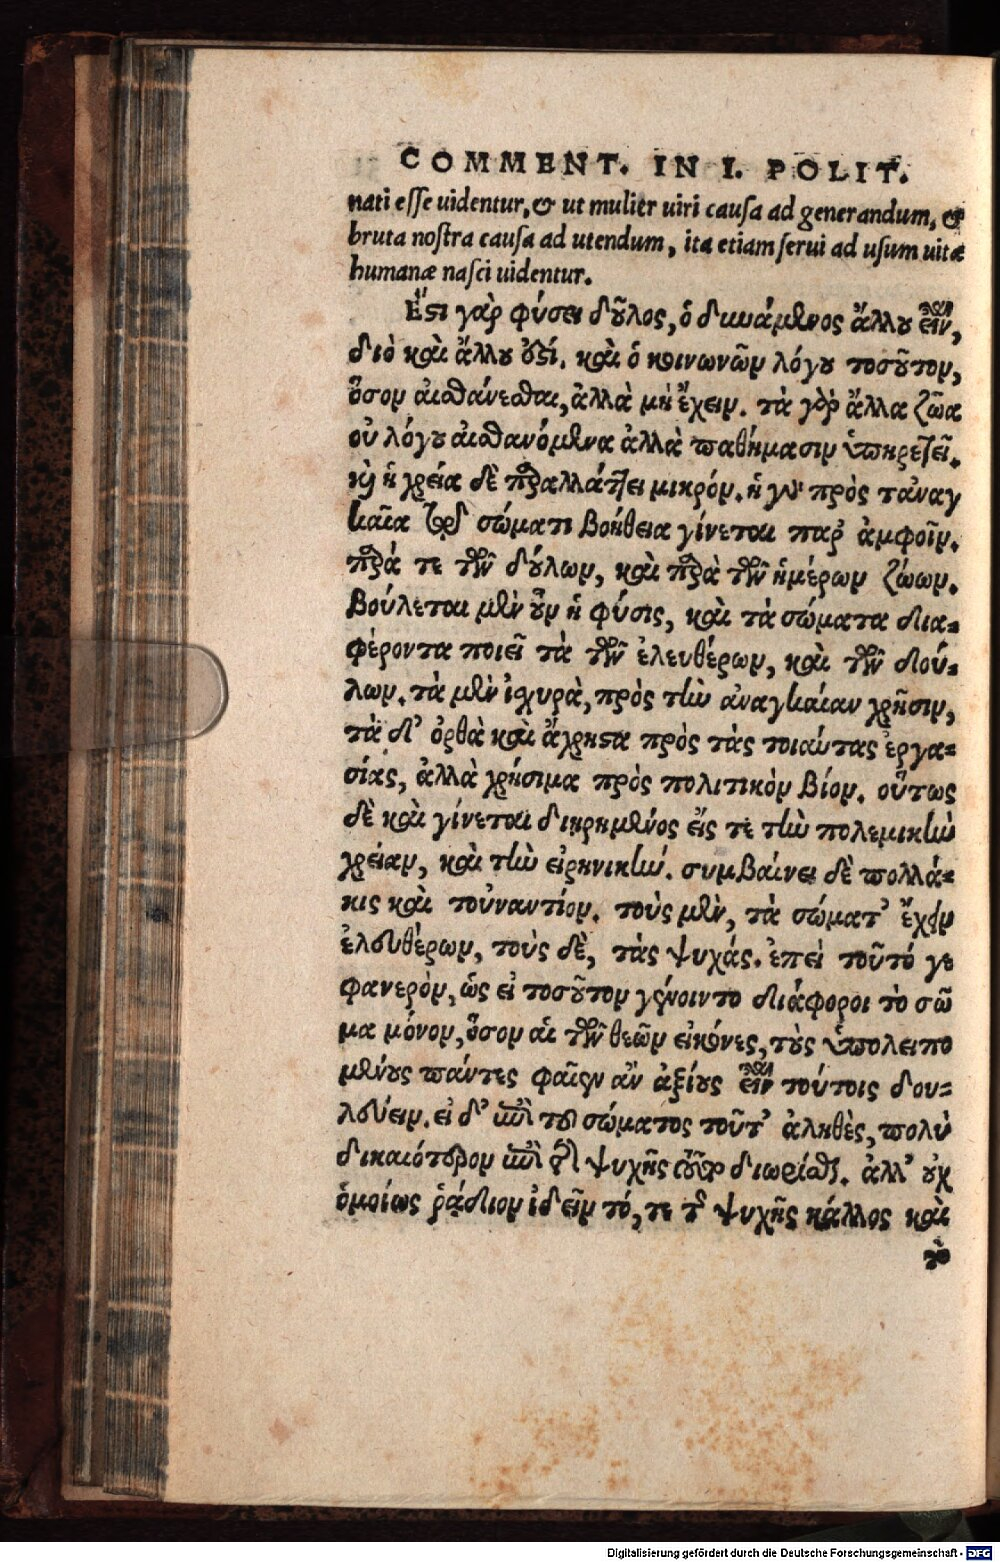 COMMENT. IN I. POLIT.
nati esse uidentur, & ut mulier uiri causa ad generandum, &
bruta nostra causa ad utendum, ita etiam serui ad usum uitæ
humanæ nasci uidentur.
Ἔστι γὰρ φύσει δοῦλος, ὁ δυνάμενος ἄλλου εἶναι,
διὸ καὶ ἄλλου ὐστί. καὶ ὁ κοινωνῶν λόγου τοσοῦτον,
ὅσον αἰσθάνεσθαι, ἀλλὰ μὴ ἔχειν. τὰ γὰρ ἄλλα ζῶα
οὐ λόγου αἰσθανόμενα ἀλλὰ παθήμασιν ὑπηρετεῖ.
καὶ ἡ χρεία δὲ παραλλάττει μικρόν. ἡ γὰρ πρὸς τἀναγ
καῖα τῷ σώματι βοήθεια γίνεται παρ' ἀμφοῖν.
παρά τε τῶν δούλων, καὶ παρὰ τῶν ἡμέρων ζώων.
Βούλεται μὲν οὖν ἡ φύσις, καὶ τὰ σώματα δια-
φέροντα ποιεῖ τὰ τῶν ἐλευθέρων, καὶ τῶν δού-
λων. τὰ μὲν ἰσχυρὰ, πρὸς τὴν ἀναγκαίαν χρῆσιν,
τὰ δ' ὀρθὰ καὶ ἄχρηστα πρὸς τὰς τοιαύτας ἐργα-
σίας, ἀλλὰ χρήσιμα πρὸς πολιτικὸν βίον. οὗτως
δὲ καὶ γίνεται διῃρημένος εἴς τε τὴν πολεμικὴν
χρείαν, καὶ τὴν εἰρηνικὴν. συμβαίνει δὲ πολλά-
κις καὶ τοὐναντίον. τοὺς μὲν, τὰ σώματ' ἔχειν
ἐλευθέρων, τοὺς δὲ, τὰς ψυχάς. ἐπεὶ τοῦτό γε
φανερὸν, ὡς εἰ τοσοῦτον γένοιντο διάφοροι τὸ σῶ
μα μόνον, ὅσον αἱ τῶν θεῶν εἰκόνες, τοὺς ὑπολειπο
μένους πάντες φαῖεν ἂν ἀξίους εἶναι τούτοις δου-
λεύειν. εἰ δ' ἐπὶ τοῦ σώματος τοῦτ' ἀληθὲς, πολὺ
δικαιότερον ἐπὶ τῆς ψυχῆς τοῦτο διωρίσθαι. ἀλλ' οὐχ
ὁμοίως ῥᾴδιον ἰδεῖν τό, τε τῆς ψυχῆς κάλλος καὶ
τὸ
Digitalisierung gefördert durch die Deutsche Forschungsgemeinschaft - DFG